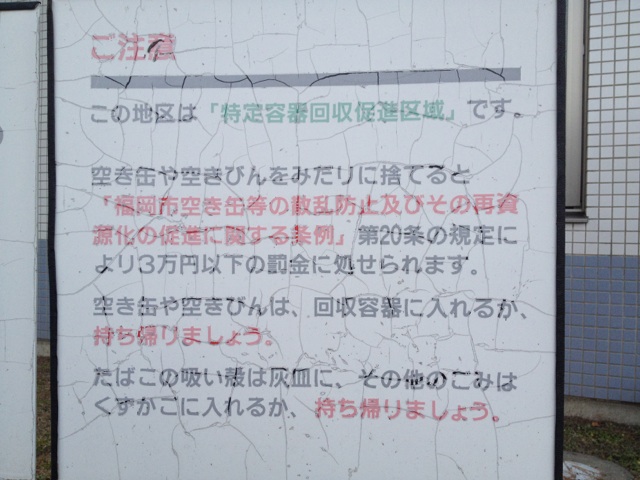 ご注意
この地区は「特定容器回収促進区域」です。
空き缶や空きびんをみだりに捨てると
「福岡市空き缶等の散乱防止及びその再資
源化の促進に関する条例」第20条の規定に
より3万円以下の罰金に処せられます。
空き缶や空きびんは、回収容器に入れるか、
持ち帰りましょう。
たばこの吸い殻は灰皿に、その他のごみは
くずかごに入れるか、持ち帰りましょう。